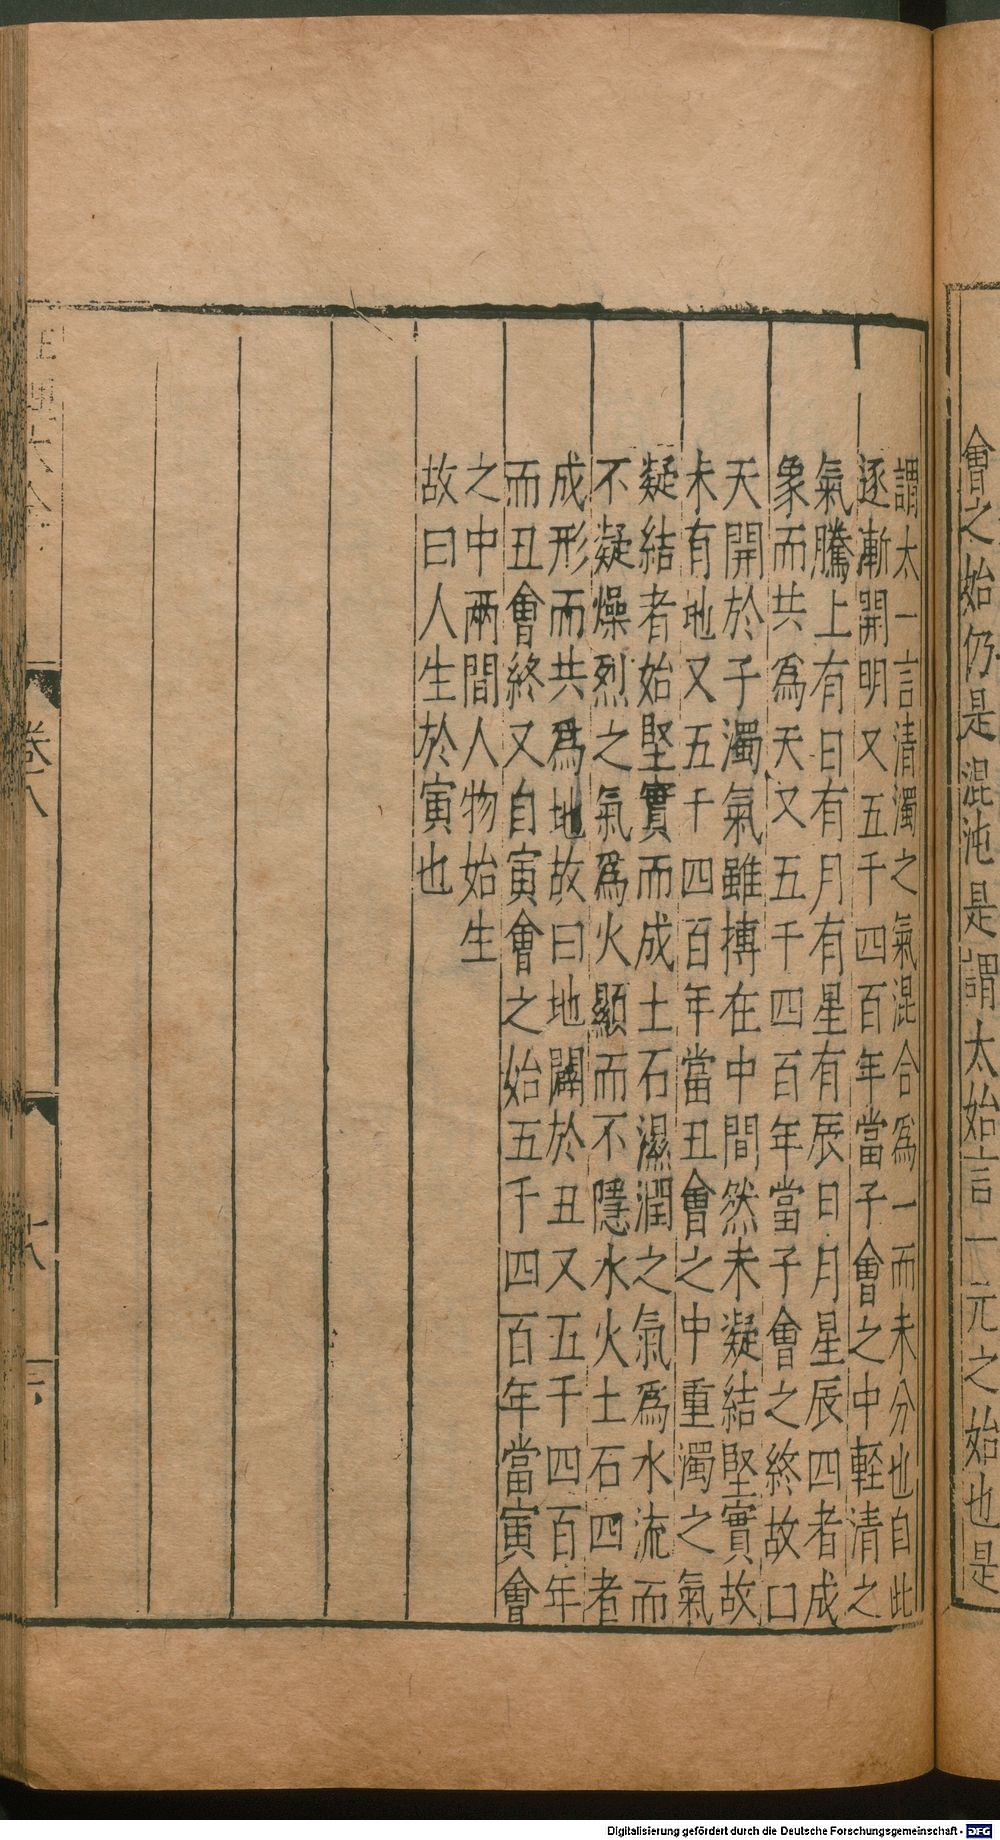 會之始仍是混沌是謂太始言一元之始也是
謂太一言清濁之氣混合為一而未分也自此
逐漸開明又五千四百年當子會之中輕清之
氣騰上有日有月有星有辰日月星辰四者成
象而共為天又五千四百年當子會之終故曰
天開於子濁氣雖摶在中間然未凝結堅實故
未有地又五千四百年當丑會之中重濁之氣
凝結者始堅實而成土石濕潤之氣為水流而
不凝燥烈之氣為火顯而不隱水火土石四者
成形而共為地故曰地闢於丑又五千四百年
而丑會終又自寅會之始五千四百年當寅會
之中兩間人物始生
故曰人生於寅也
卷八
Digitalisierung gefördert durch die Deutsche Forschungsgemeinschaft - DFG